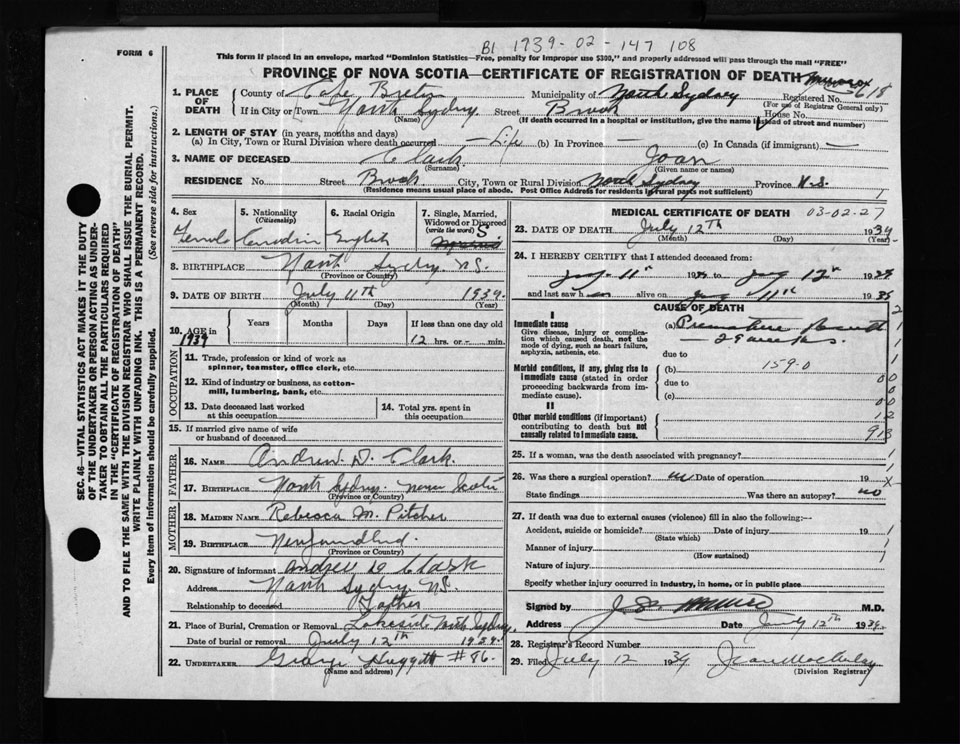 B1 1939-02-147 108
FORM 6
This form if placed in an envelope, marked "Dominion Statistics—Free, penalty for improper use $300," and properly addressed will pass through the mail "FREE"
PROVINCE OF NOVA SCOTIA—CERTIFICATE OF REGISTRATION OF DEATH
1. PLACE OF DEATH
County of Cape Breton Municipality of North Sydney Registered No. 618
(For use of Registrar General only)
If in City or Town North Sydney Street Brook House No.
(Name) (If death occurred in a hospital or institution, give the name instead of street and number)
2. LENGTH OF STAY (in years, months and days)
(a) In City, Town or Rural Division where death occurred Life (b) In Province — (c) In Canada (if immigrant) —
3. NAME OF DECEASED Clark Joan
(Surname) (Given name or names)
RESIDENCE No. Street Brook City, Town or Rural Division North Sydney Province N.S.
(Residence means usual place of abode. Post Office Address for residents in rural parts not sufficient) 1
4. Sex Female
5. Nationality (Citizenship) Canadian
6. Racial Origin English
7. Single, Married, Widowed or Divorced (write the word) S
8. BIRTHPLACE North Sydney. N.S.
(Province or Country)
9. DATE OF BIRTH July 11th 1939
(Month) (Day) (Year)
10. AGE in 1939
Years Months Days If less than one day old
12 hrs. or - min.
OCCUPATION
11. Trade, profession or kind of work as spinner, teamster, office clerk, etc.
12. Kind of industry or business, as cotton-mill, lumbering, bank, etc.
13. Date deceased last worked at this occupation
14. Total yrs. spent in this occupation
15. If married give name of wife or husband of deceased
FATHER
16. NAME Andrew D. Clark.
17. BIRTHPLACE North Sydney Nova Scotia
(Province or Country)
MOTHER
18. MAIDEN NAME Rebecca M. Pitcher
19. BIRTHPLACE Newfoundland.
(Province or Country)
20. Signature of informant Andrew D Clark
Address North Sydney NS.
Relationship to deceased Father
21. Place of Burial, Cremation or Removal Lakeside North Sydney.
Date of burial or removal July 12th 1939.
22. UNDERTAKER George Huggett #86.
(Name and address)
MEDICAL CERTIFICATE OF DEATH 03-02-27
23. DATE OF DEATH July 12th 1939
(Month) (Day) (Year)
24. I HEREBY CERTIFY that I attended deceased from:
July 11th 1939 to July 12th 1939
and last saw h er alive on July 11th 1939
CAUSE OF DEATH
I
Immediate cause
Give disease, injury or complication which caused death, not the mode of dying, such as heart failure, asphyxia, asthenia, etc.
(a) Premature
due to
Morbid conditions, if any, giving rise to immediate cause (stated in order proceeding backwards from immediate cause).
(b) 159.0
due to
(c)
II
Other morbid conditions (if important) contributing to death but not causally related to immediate cause.
913
25. If a woman, was the death associated with pregnancy?
26. Was there a surgical operation? no Date of operation 19
State findings Was there an autopsy? no
27. If death was due to external causes (violence) fill in also the following:—
Accident, suicide or homicide? Date of injury 19
(State which)
Manner of injury
(How sustained)
Nature of injury
Specify whether injury occurred in industry, in home, or in public place
Signed by M.D.
Address Date July 12th 1939.
28. Registrar's Record Number
29. Filed July 12 1939 Jean MacAulay
(Division Registrar)
SEC. 46—VITAL STATISTICS ACT MAKES IT THE DUTY
OF THE UNDERTAKER OR PERSON ACTING AS UNDER-
TAKER TO OBTAIN ALL THE PARTICULARS REQUIRED
IN THE "CERTIFICATE OF REGISTRATION OF DEATH"
AND TO FILE THE SAME WITH THE DIVISION REGISTRAR WHO SHALL ISSUE THE BURIAL PERMIT.
WRITE PLAINLY WITH UNFADING INK. THIS IS A PERMANENT RECORD.
Every item of information should be carefully supplied. (See reverse side for instructions.)